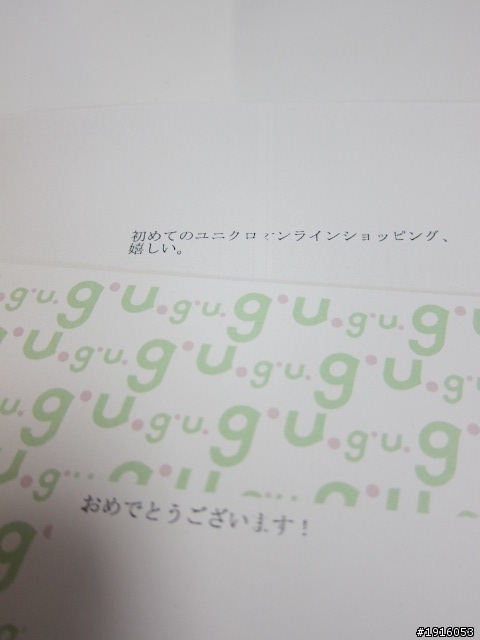 初めてのユニクロオンラインショッピング、
嬉しい。
g.u.g.u.g.u.g.u.g.u.
g.u.g.u.g.u.g.u.
u.g.u.g.u.g.u.g.u.g
u.g.u.
おめでとうございます！
g
#1916053